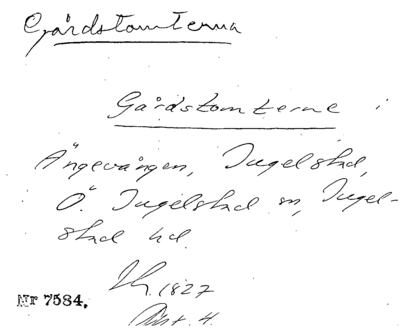 Gårdstomterna
Gårdstomterne i
Ängevången, Ingelstad,
Ö. Ingelstad sn, Ingel-
stad hd.
Lh. 1827
Nr 7584.
Akt. 4.